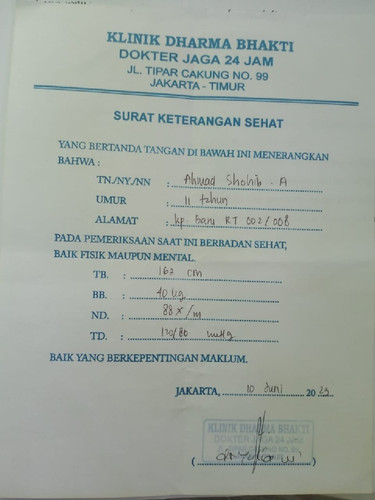 KLINIK DHARMA BHAKTI
DOKTER JAGA 24 JAM
JL. TIPAR CAKUNG NO. 99
JAKARTA - TIMUR
SURAT KETERANGAN SEHAT
YANG BERTANDA TANGAN DI BAWAH INI MENERANGKAN
BAHWA :
TN./NY./NN : Ahmad Shohib . A
UMUR : 11 tahun
ALAMAT : kp. Baru RT 002/008
PADA PEMERIKSAAN SAAT INI BERBADAN SEHAT,
BAIK FISIK MAUPUN MENTAL.
TB. : 162 cm
BB. : 40 kg
ND. : 88 x/m
TD. : 110/80 mmHg
BAIK YANG BERKEPENTINGAN MAKLUM.
JAKARTA, 10 Juni 2023
KLINIK DHARMA BHAKTI
DOKTER JAGA 24 JAM
JL. TIPAR CAKUNG NO. 99